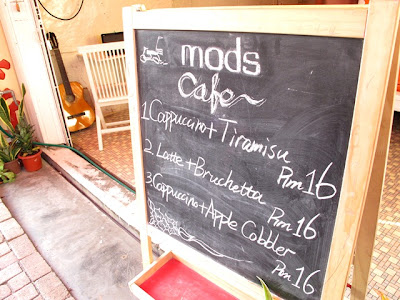 mods
cafe~
1. Cappuccino + Tiramisu Rm 16
2. Latte + Bruchetta Rm 16
3. Cappuccino + Apple Cobbler Rm 16